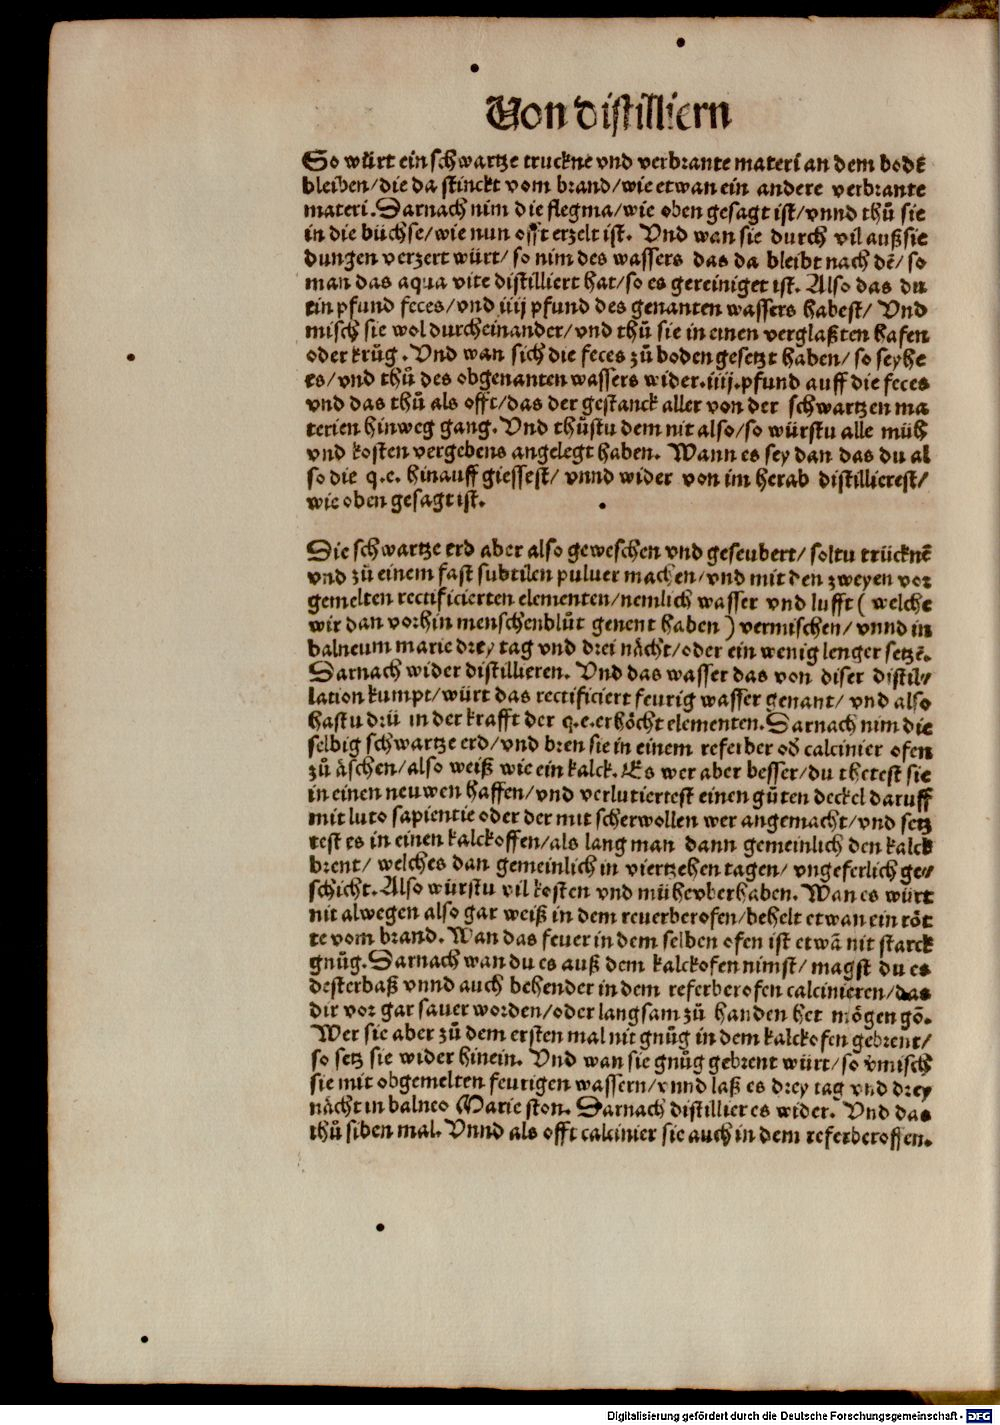 Von distilliern
So würt ein schwartze truckne vnd verbrante materi an dem bodē
bleiben/die da stinckt vom brand/wie etwan ein andere verbrante
materi. Darnach nim die flegma/wie oben gesagt ist/vnnd thů sie
in die büchse/wie nun offt erzelt ist. Vnd wan sie durch vil außsie
dungen verzert würt/ so nim des wassers das da bleibt nach dē/ so
man das aqua vite distilliert hat/so es gereiniget ist. Also das du
ein pfund feces/vnd iiij pfund des genanten wassers habest/ Vnd
misch sie wol durcheinander/vnd thů sie in einen verglaßten hafen
oder krůg. Vnd wan sich die feces zů boden gesetzt haben/ so seyhe
es/vnd thů des obgenanten wassers wider.iiij.pfund auff die feces
vnd das thů als offt/das der gestanck aller von der schwartzen ma
terien hinweg gang. Vnd thůstu dem nit also/so würstu alle müh
vnd kosten vergebens angelegt haben. Wann es sey dan das du al
so die q.e. hinauff giessest/ vnnd wider von im herab distillierest/
wie oben gesagt ist.
Die schwartze erd aber also geweschen vnd geseubert/ soltu trücknē
vnd zů einem fast subtilen puluer machen/vnd mit den zweyen vor
gemelten rectificierten elementen/nemlich wasser vnd lufft ( welche
wir dan vorhin menschenblůt genent haben ) vermischen/ vnnd in
balneum marie drey tag vnd drei nächt/oder ein wenig lenger setzē.
Darnach wider distillieren. Vnd das wasser das von diser distil//
lation kumpt/würt das rectificiert feurig wasser genant/ vnd also
hastu drü in der krafft der q.e.erhöcht elementen. Darnach nim die
selbig schwartze erd/vnd bren sie in einem refeiber od̄ calcinier ofen
zů äschen/also weiß wie ein kalck. Es wer aber besser/du thetest sie
in einen neuwen haffen/vnd verlutiertest einen gůten deckel daruff
mit luto sapientie oder der mit scherwollen wer angemacht/vnd setz
test es in einen kalckoffen/als lang man dann gemeinlich den kalck
brent/ welches dan gemeinlich in viertzehen tagen/ vngeferlich ge//
schicht. Also würstu vil kosten vnd mühe vberhaben. Wan es würt
nit alwegen also gar weiß in dem reuerberofen/behelt etwan ein röt
te vom brand. Wan das feuer in dem selben ofen ist etwā nit starck
gnůg. Darnach wan du es auß dem kalckofen nimst/ magst du es
desterbaß vnnd auch behender in dem referberofen calcinieren/das
dir vor gar sauer worden/oder langsam zů handen het mögen gō.
Wer sie aber zů dem ersten mal nit gnůg in dem kalckofen gebrent/
so setz sie wider hinein. Vnd wan sie gnůg gebrent würt/so v̄misch
sie mit obgemelten feurigen wassern/vnnd laß es drey tag vnd drey
nächt in balneo Marie ston. Darnach distillier es wider. Vnd das
thů siben mal. Vnnd als offt calcinier sie auch in dem referberoffen.
Digitalisierung gefördert durch die Deutsche Forschungsgemeinschaft - DFG